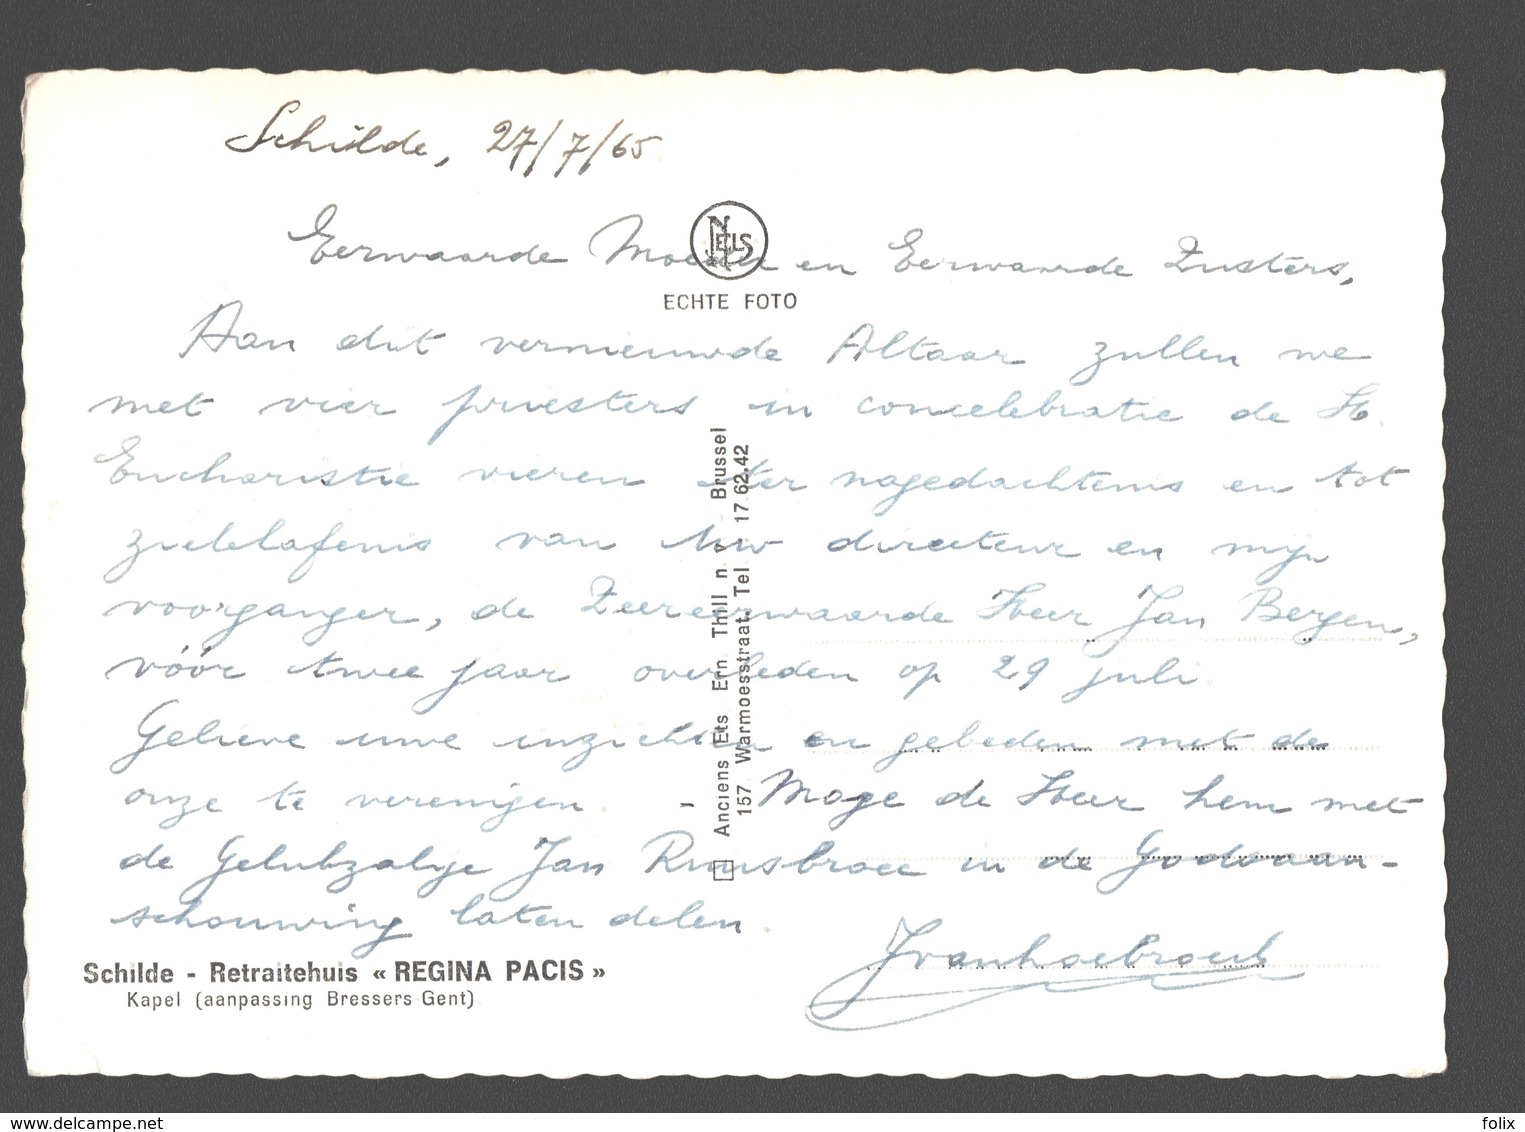 Schilde, 27/7/65
NELS
ECHTE FOTO
Eerwaarde Moeder en Eerwaarde Zusters,
Aan dit vernieuwde Altaar zullen we
met vier priesters in concelebratie de H.
Eucharistie vieren ter nagedachtenis en tot
zielelafenis van Uw directeur en mijn
voorganger, de Zeereerwaarde Heer Jan Bergen,
vóór twee jaar overleden op 29 juli.
Gelieve uwe inzichten en gebeden met de
onze te verenigen. - Moge de Heer hem met
de Gelukzalige Jan Ruusbroec in de Godsaan-
schouwing laten delen.
Anciens Ets Ern Thill n. v. Brussel
157 Warmoesstraat. Tel. 17.62.42
Schilde - Retraitehuis « REGINA PACIS »
Kapel (aanpassing Bressers-Gent)
www.delcampe.net
folix